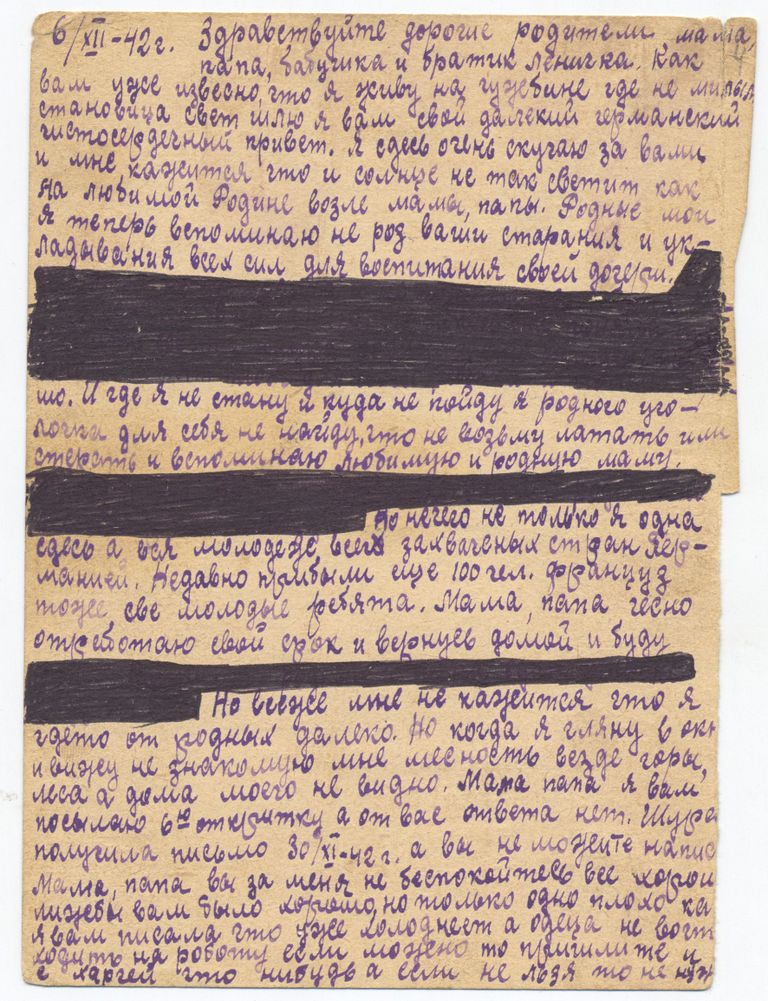 6/XII-42г. Здравствуйте дорогие родители мама,
папа, бабушка и братик Леничка. Как
вам уже извесно, что я живу на чужбине где не
становица свет шлю я вам свой далекий германский
чистосердечный привет. Я сдесь очень скучаю за вами
и мне кажится что и солнце не так светит как
на любимой Родине возле мамы, папы. Родные мои
я теперь вспоминаю не роз ваши старания и ук-
ладывания всех сил для воспитания своей дочери.
шо. И где я не стану и куда не пойду я родного уго-
лочка для себя не найду, что не возьму латать или
стерать и вспоминаю любимую и родную маму.
Но нечего не только я одна
сдесь а вся молодеже всех захваченых стран Гер-
манией. Недавно прибыли еще 100 чел. француз
тоже све молодые ребята. Мама, папа чесно
отработаю свой срок и вернусь домой и буду
Но всеже мне не кажится что я
гдето от родных далеко. Но когда я гляну в окн
и вижу не знакомую мне месность везде горы,
леса а дома моего не видно. Мама папа я вам
посылаю 6ю открытку а от вас ответа нет. Шура
получила письмо 30/XI-42г. а вы не можите напис
Мама, папа вы за меня не беспокойтесь все хорош
лижебы вам было хорошо, но только одно плохо ка
я вам писала что уже холоднеет а одеца не
ходить на роботу если можно то пришлите и
с харчей что нибудь а если не льзя то не нуж